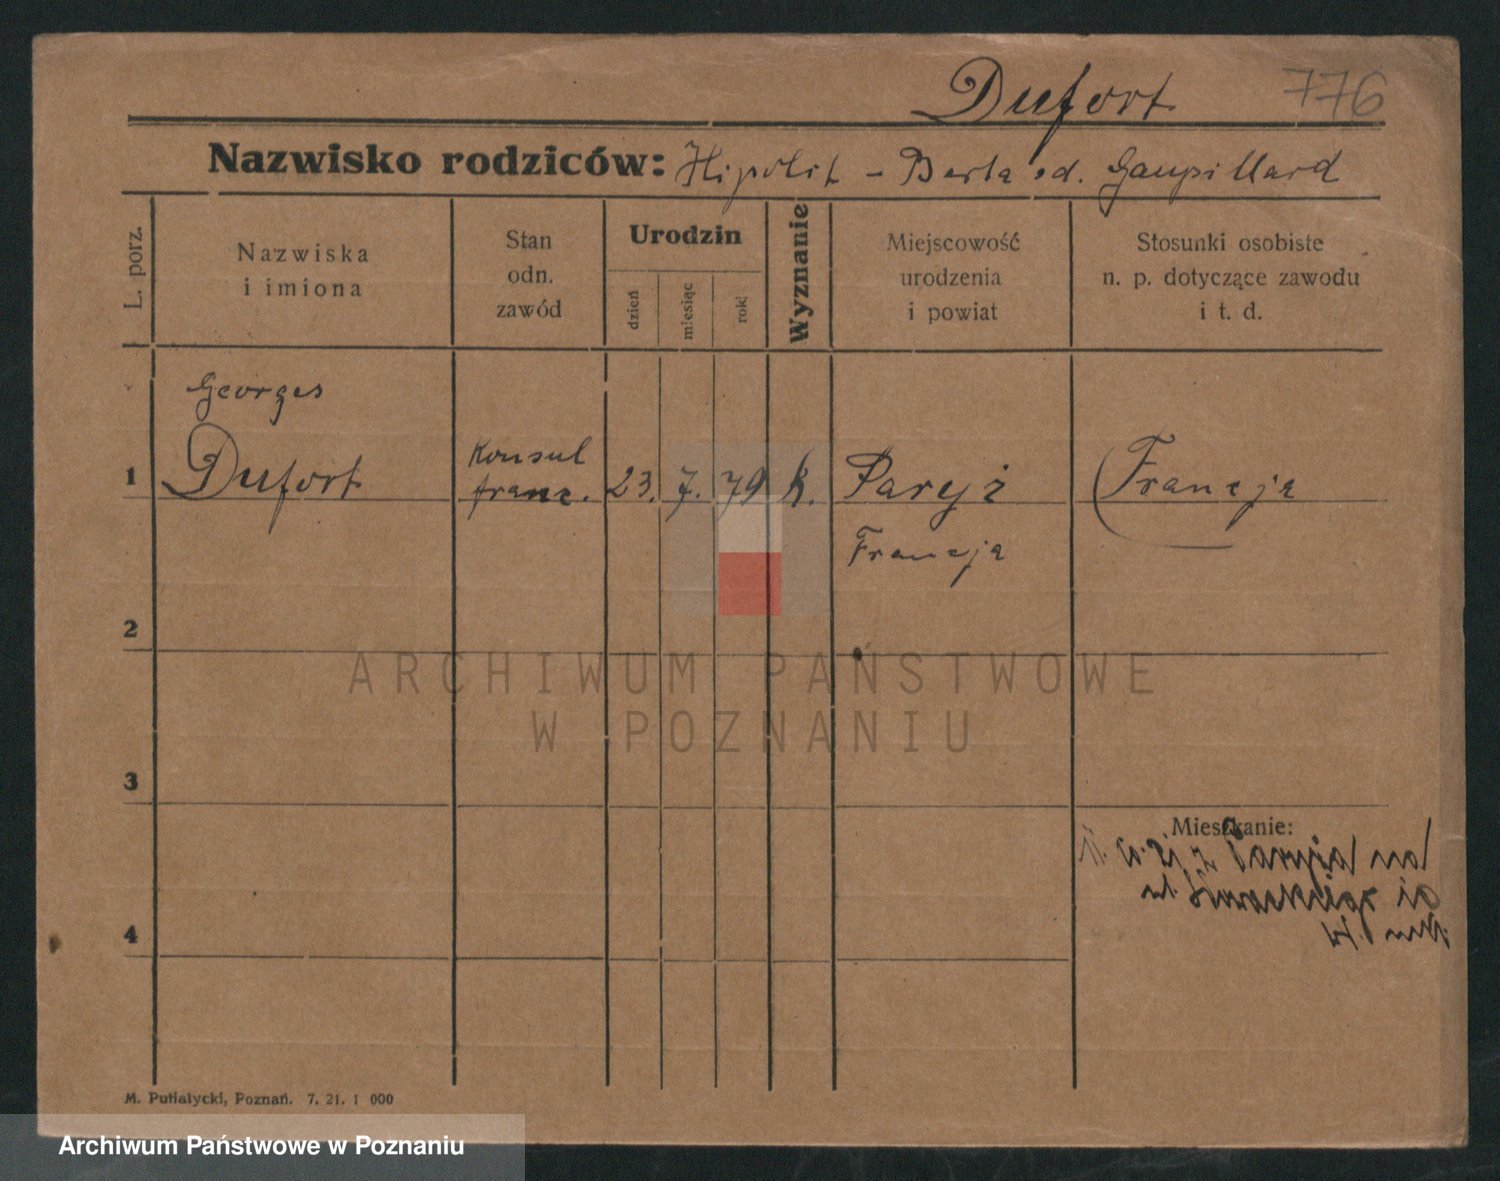 Dufort 776
Nazwisko rodziców: Hipolit - Berta Gaupillard
L. porz.
Nazwiska
i imiona
Stan
odn.
zawód
Urodzin
dzień
miesiąc
rok
Wyznanie
Miejscowość
urodzenia
i powiat
Stosunki osobiste
n. p. dotyczące zawodu
i t. d.
Georges
1 Dufort
Konsul
franc.
23. 7. 79 k.
Paryż
Francja
Francja
2
3
4
Mieszkanie:
M. Putiatycki, Poznań. 7. 21. 1 000
ARCHIWUM PAŃSTWOWE
W POZNANIU
Archiwum Państwowe w Poznaniu